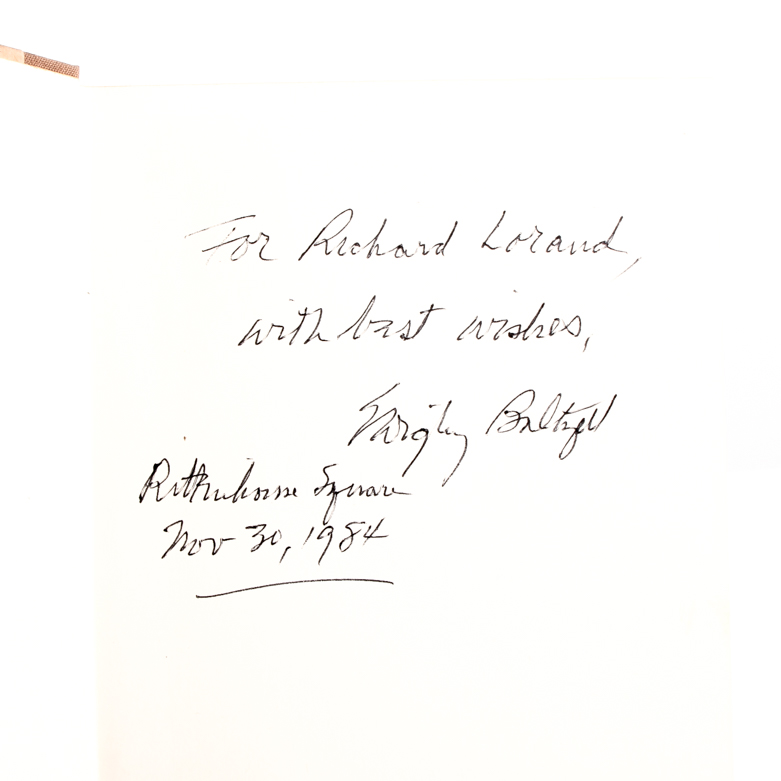 For Richard Lorand,
with best wishes,
Digby Baltzell
Rittenhouse Square
Nov 30, 1984